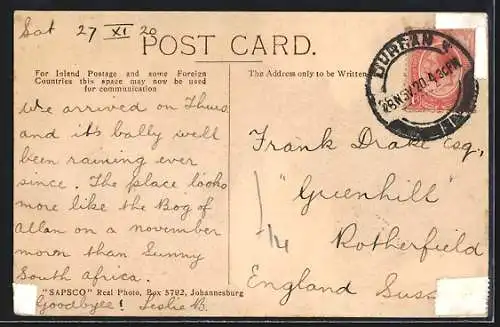 Sat 27 XI 20
POST CARD.
For Inland Postage and some Foreign
Countries this space may now be used
for communication
The Address only to be Written
DURBAN
28 NOV 20 4.30PM
We arrived on Thurs
and it's bally well
been raining ever
since. The place looks
more like the Bog of
Allan on a november
morn than Sunny
South africa.
"SAPSCO" Real Photo, Box 5792, Johannesburg
Goodbyee! Leslie B.
Frank Drake Esq.,
"Greenhill"
Rotherfield
England Suss